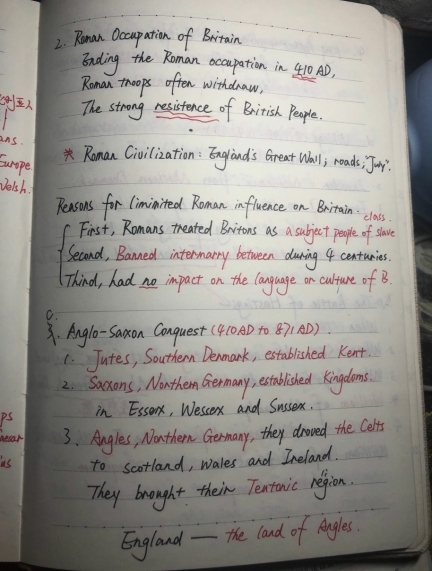 2. Roman Occupation of Britain
Ending the Roman occupation in 410 AD,
Roman troops often withdraw,
The strong resistence of British People.
* Roman Civilization: England's Great Wall; roads; "Jury".
Reasons for liminited Roman influence on Britain.
First, Romans treated Britons as a subject people of slave class.
Second, Banned intermarry between during 4 centuries.
Third, had no impact on the language or culture of B.
Anglo-Saxon Conquest (410AD to 871 AD).
1. Jutes, Southern Denmark, established Kent
2. Saxons, Northern Germany, established Kingdoms.
in Essex, Wessex and Sussex.
3. Angles, Northern Germany, they droved the Celts
to scotland, Wales and Ireland.
They brought their Teutonic region.
England — the land of Angles.
ans.
Europe
Welsh.
ps
aesar